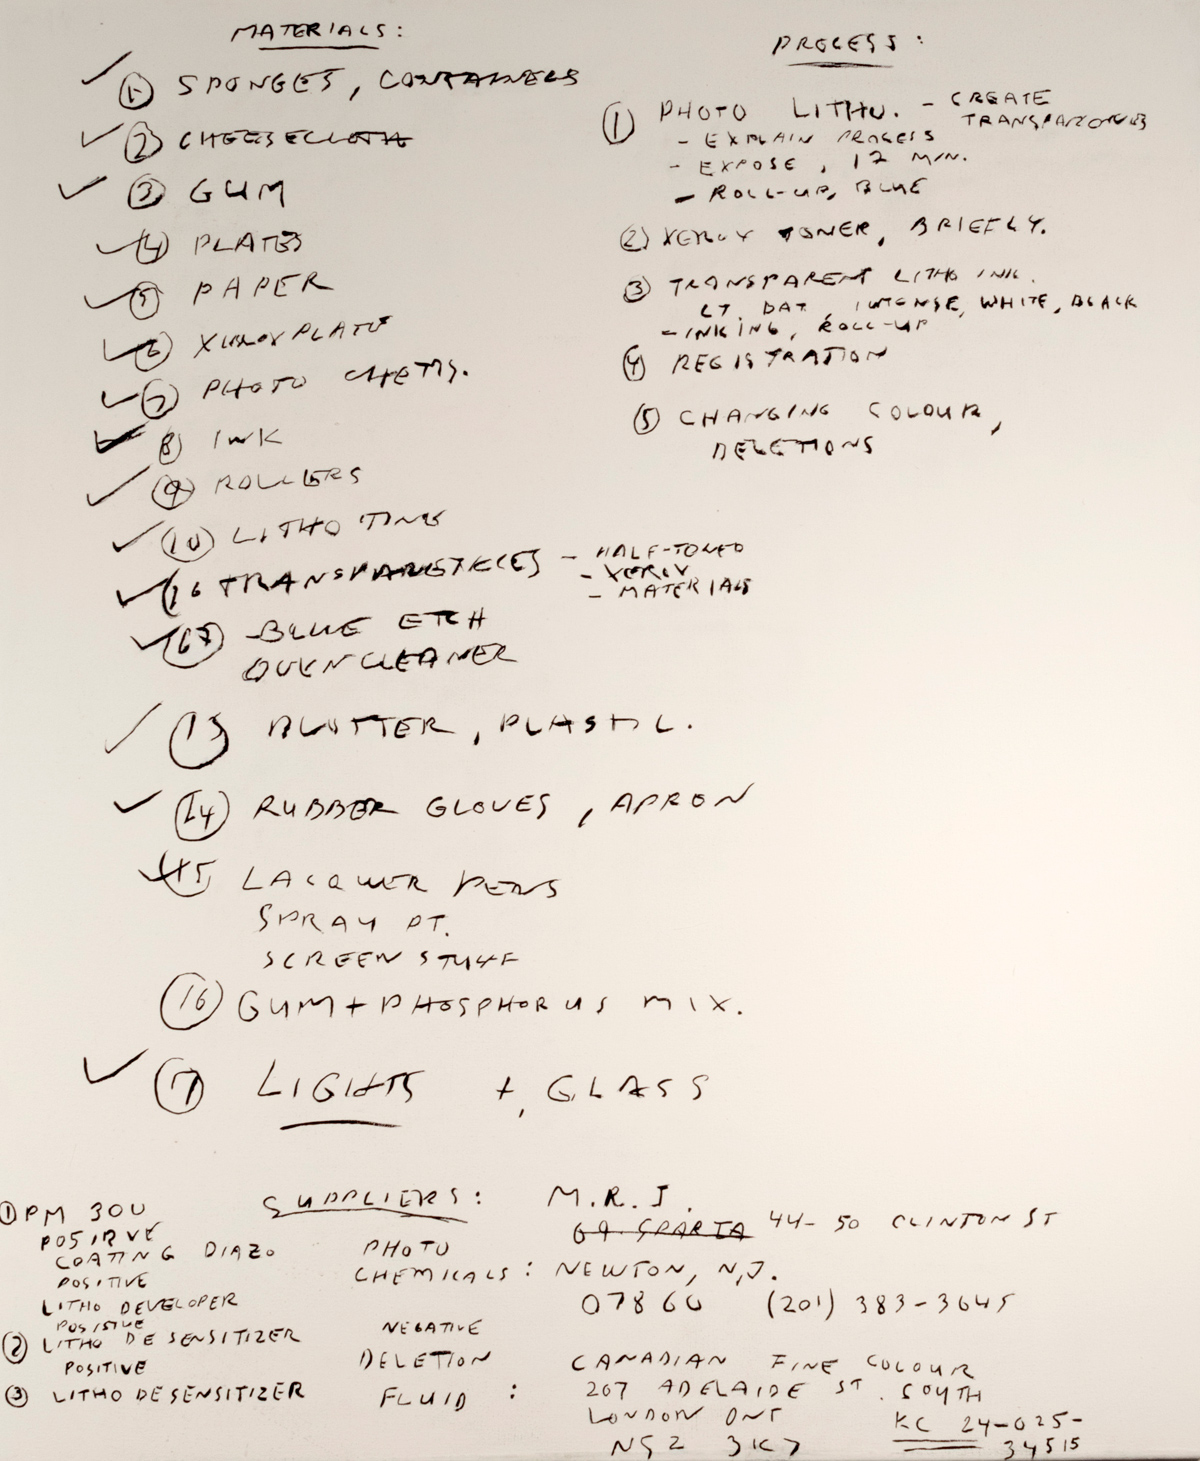 MATERIALS:
✓ ① SPONGES, CONTAINERS
✓ ② CHEESECLOTH
✓ ③ GUM
✓ 4 PLATES
✓ ⑤ PAPER
✓ ⑥ XEROX PLATE
✓ ⑦ PHOTO CHEMS.
✓ ⑧ INK
✓ ⑨ ROLLERS
✓ ⑩ LITHOTINE
✓ TRANSPARENCIES - HALF-TONED
- XEROX
- MATERIALS
✓ BLUE ETCH
OVEN CLEANER
✓ ⑬ BLOTTER, PLASTIC.
✓ ⑭ RUBBER GLOVES, APRON
✓ 15 LACQUER PENS
SPRAY PT.
SCREEN STUFF
⑯ GUM + PHOSPHORUS MIX.
✓ ⑰ LIGHTS +, GLASS
PROCESS:
① PHOTO LITHO. - CREATE
TRANSPARENCIES
- EXPLAIN PROCESS
- EXPOSE, 12 MIN.
- ROLL-UP, BLUE
② XEROX TONER, BRIEFLY.
③ TRANSPARENT LITHO INK.
LT. INTENSE, WHITE, BLACK
- INKING, ROLL-UP
④ REGISTRATION
⑤ CHANGING COLOUR,
DELETIONS
① PM 300
POSITIVE
COATING DIAZO
POSITIVE
LITHO DEVELOPER
POSITIVE
② LITHO DESENSITIZER
POSITIVE
③ LITHO DESENSITIZER
SUPPLIERS:
PHOTO
CHEMICALS:
M.R.J.
69 SPARTA 44-50 CLINTON ST
NEWTON, N.J.
07860 (201) 383-3645
NEGATIVE
DELETION
FLUID:
CANADIAN FINE COLOUR
207 ADELAIDE ST. SOUTH
LONDON ONT
N5Z 3K7
KC 24-025-
34515